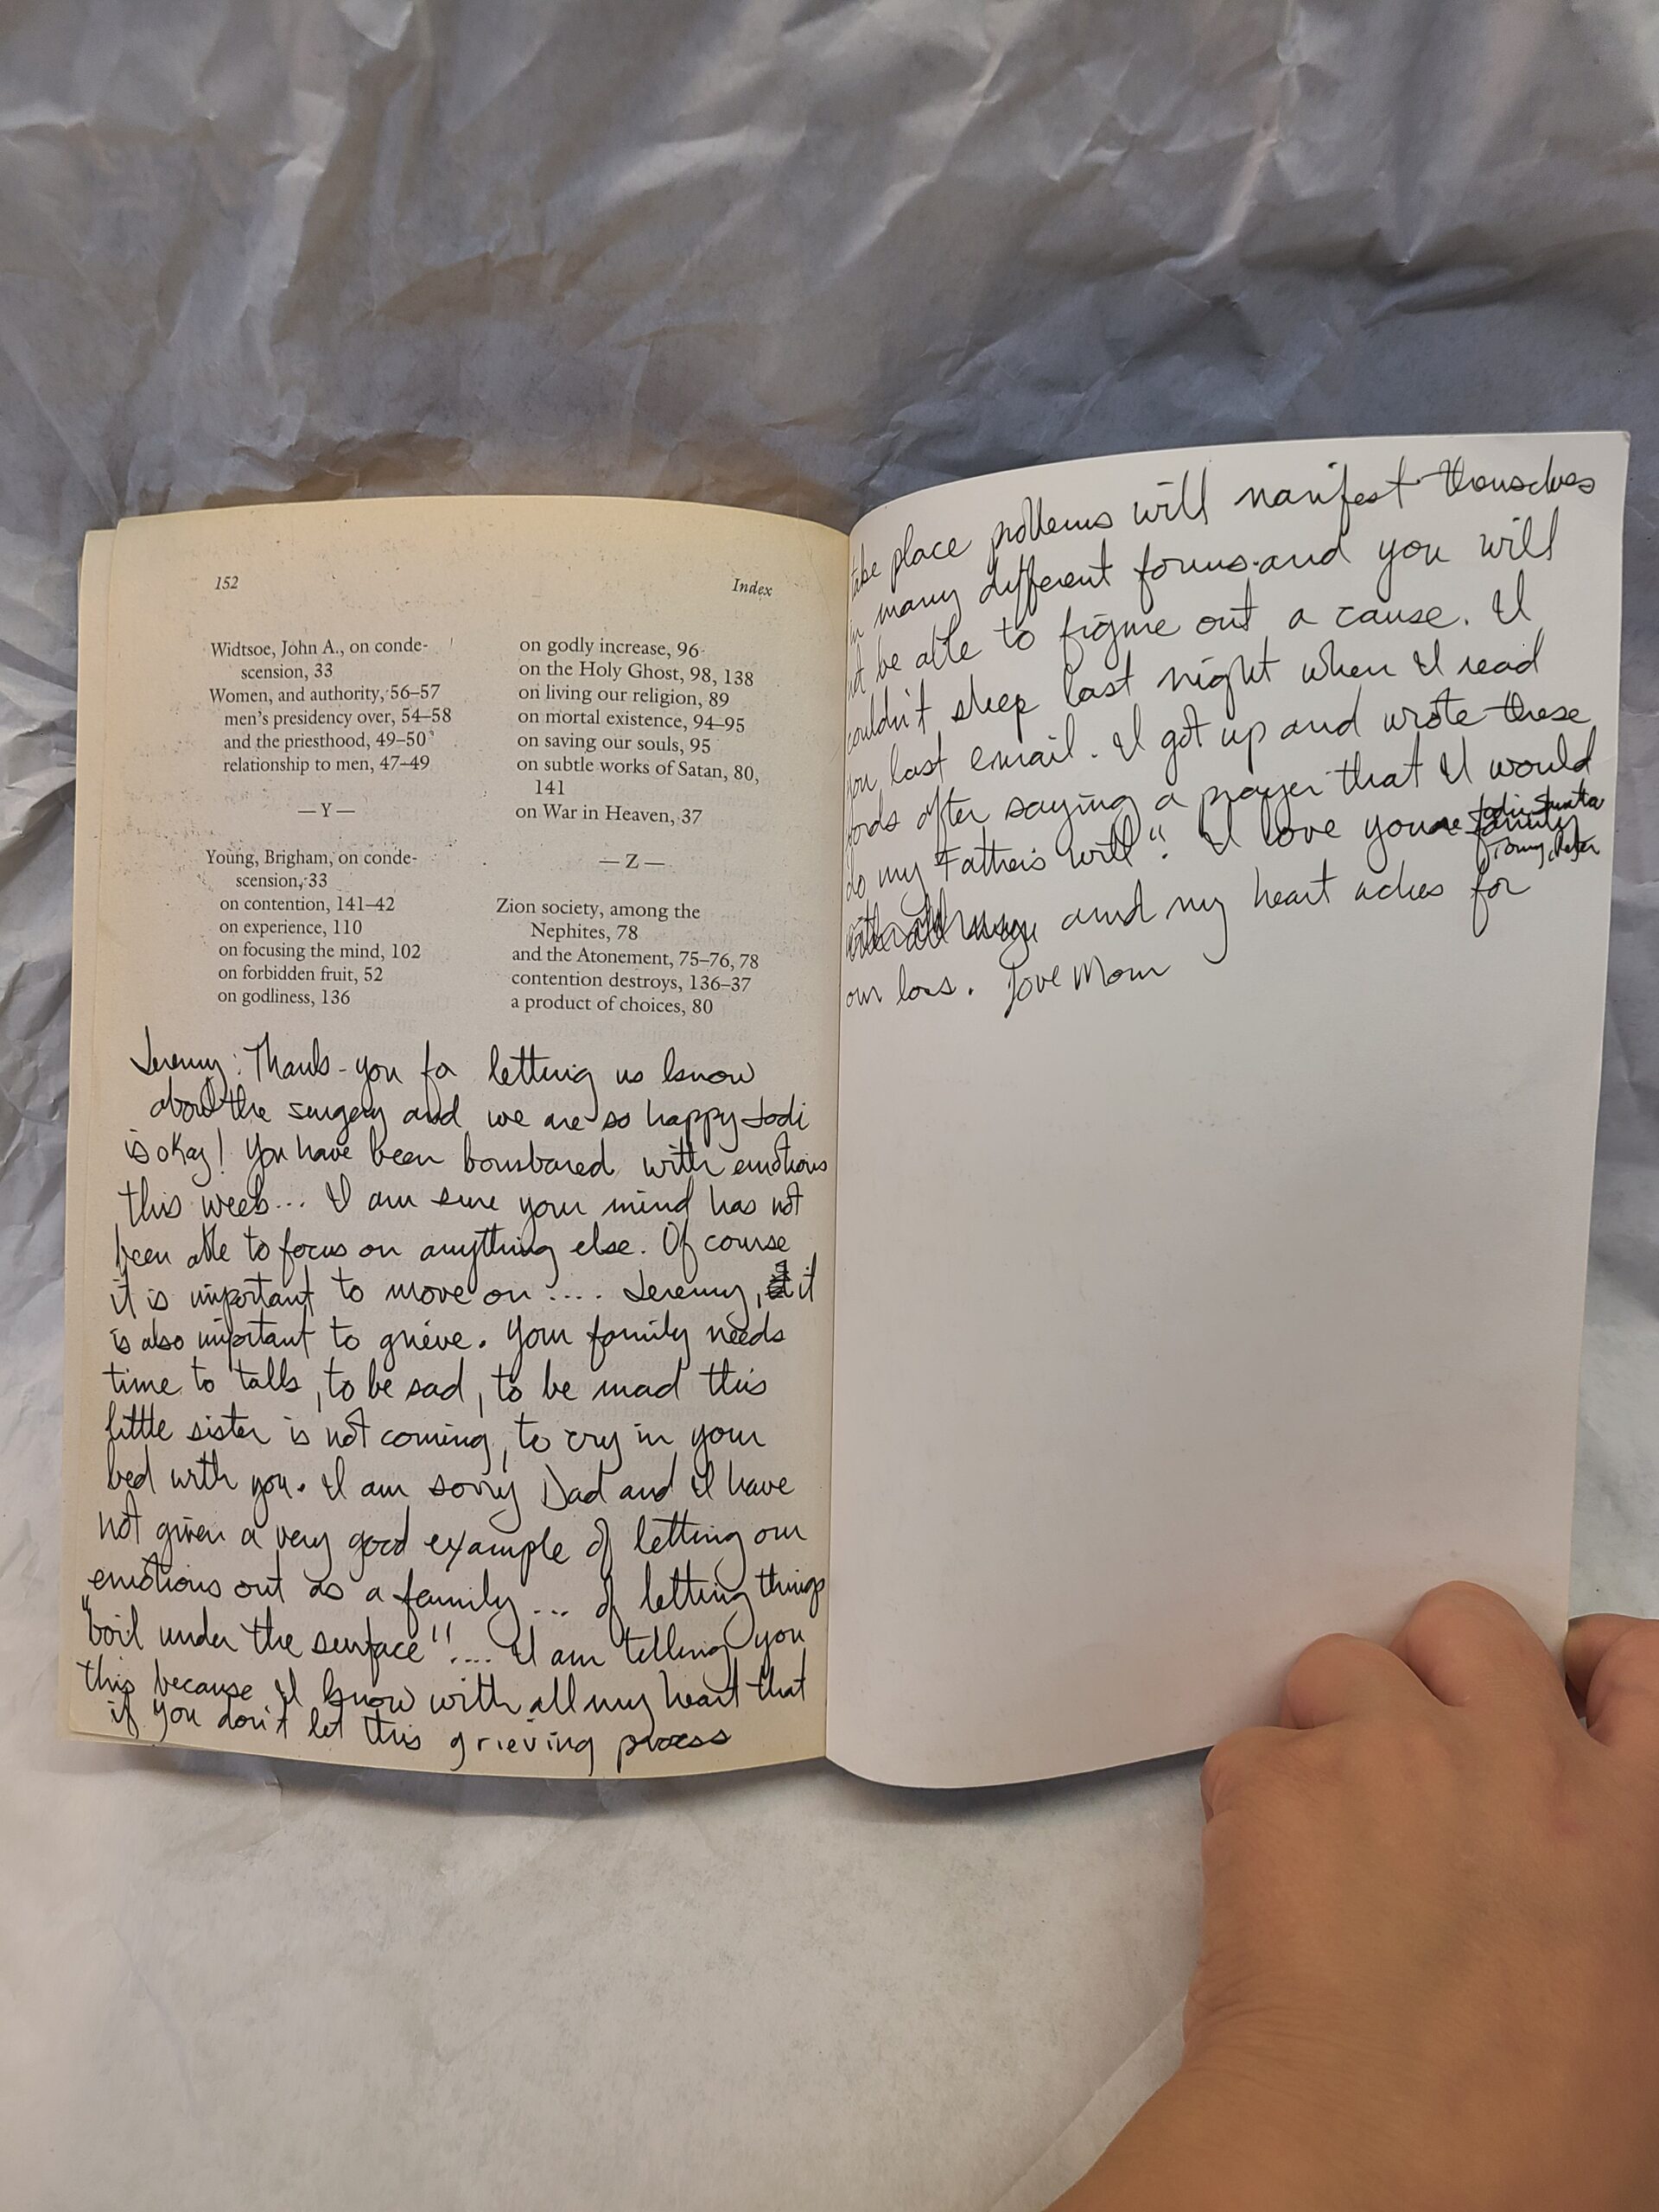 152
Index
Widtsoe, John A., on conde-
scension, 33
Women, and authority, 56–57
men's presidency over, 54–58
and the priesthood, 49–50
relationship to men, 47–49
— Y —
Young, Brigham, on conde-
scension, 33
on contention, 141–42
on experience, 110
on focusing the mind, 102
on forbidden fruit, 52
on godliness, 136
on godly increase, 96
on the Holy Ghost, 98, 138
on living our religion, 89
on mortal existence, 94–95
on saving our souls, 95
on subtle works of Satan, 80,
141
on War in Heaven, 37
— Z —
Zion society, among the
Nephites, 78
and the Atonement, 75–76, 78
contention destroys, 136–37
a product of choices, 80
Jeremy: Thank-you for letting us know
about the surgery and we are so happy Jodi
is okay! You have been bombared with emotions
this week... I am sure your mind has not
been able to focus on anything else. Of course
it is important to move on .... Jeremy, it
is also important to grieve. Your family needs
time to talk, to be sad, to be mad this
little sister is not coming, to cry in your
bed with you. I am sorry Dad and I have
not given a very good example of letting our
emotions out as a family ... of letting things
"boil under the surface".... I am telling you
this because I know with all my heart that
if you don't let this grieving process
take place problems will manifest themselves
in many different forms and you will
not be able to figure out a cause. I
couldn't sleep last night when I read
you last email. I got up and wrote these
words after saying a prayer that I would
do my Father's will". I love you Jodi
and my heart aches for
our loss. Love Mom